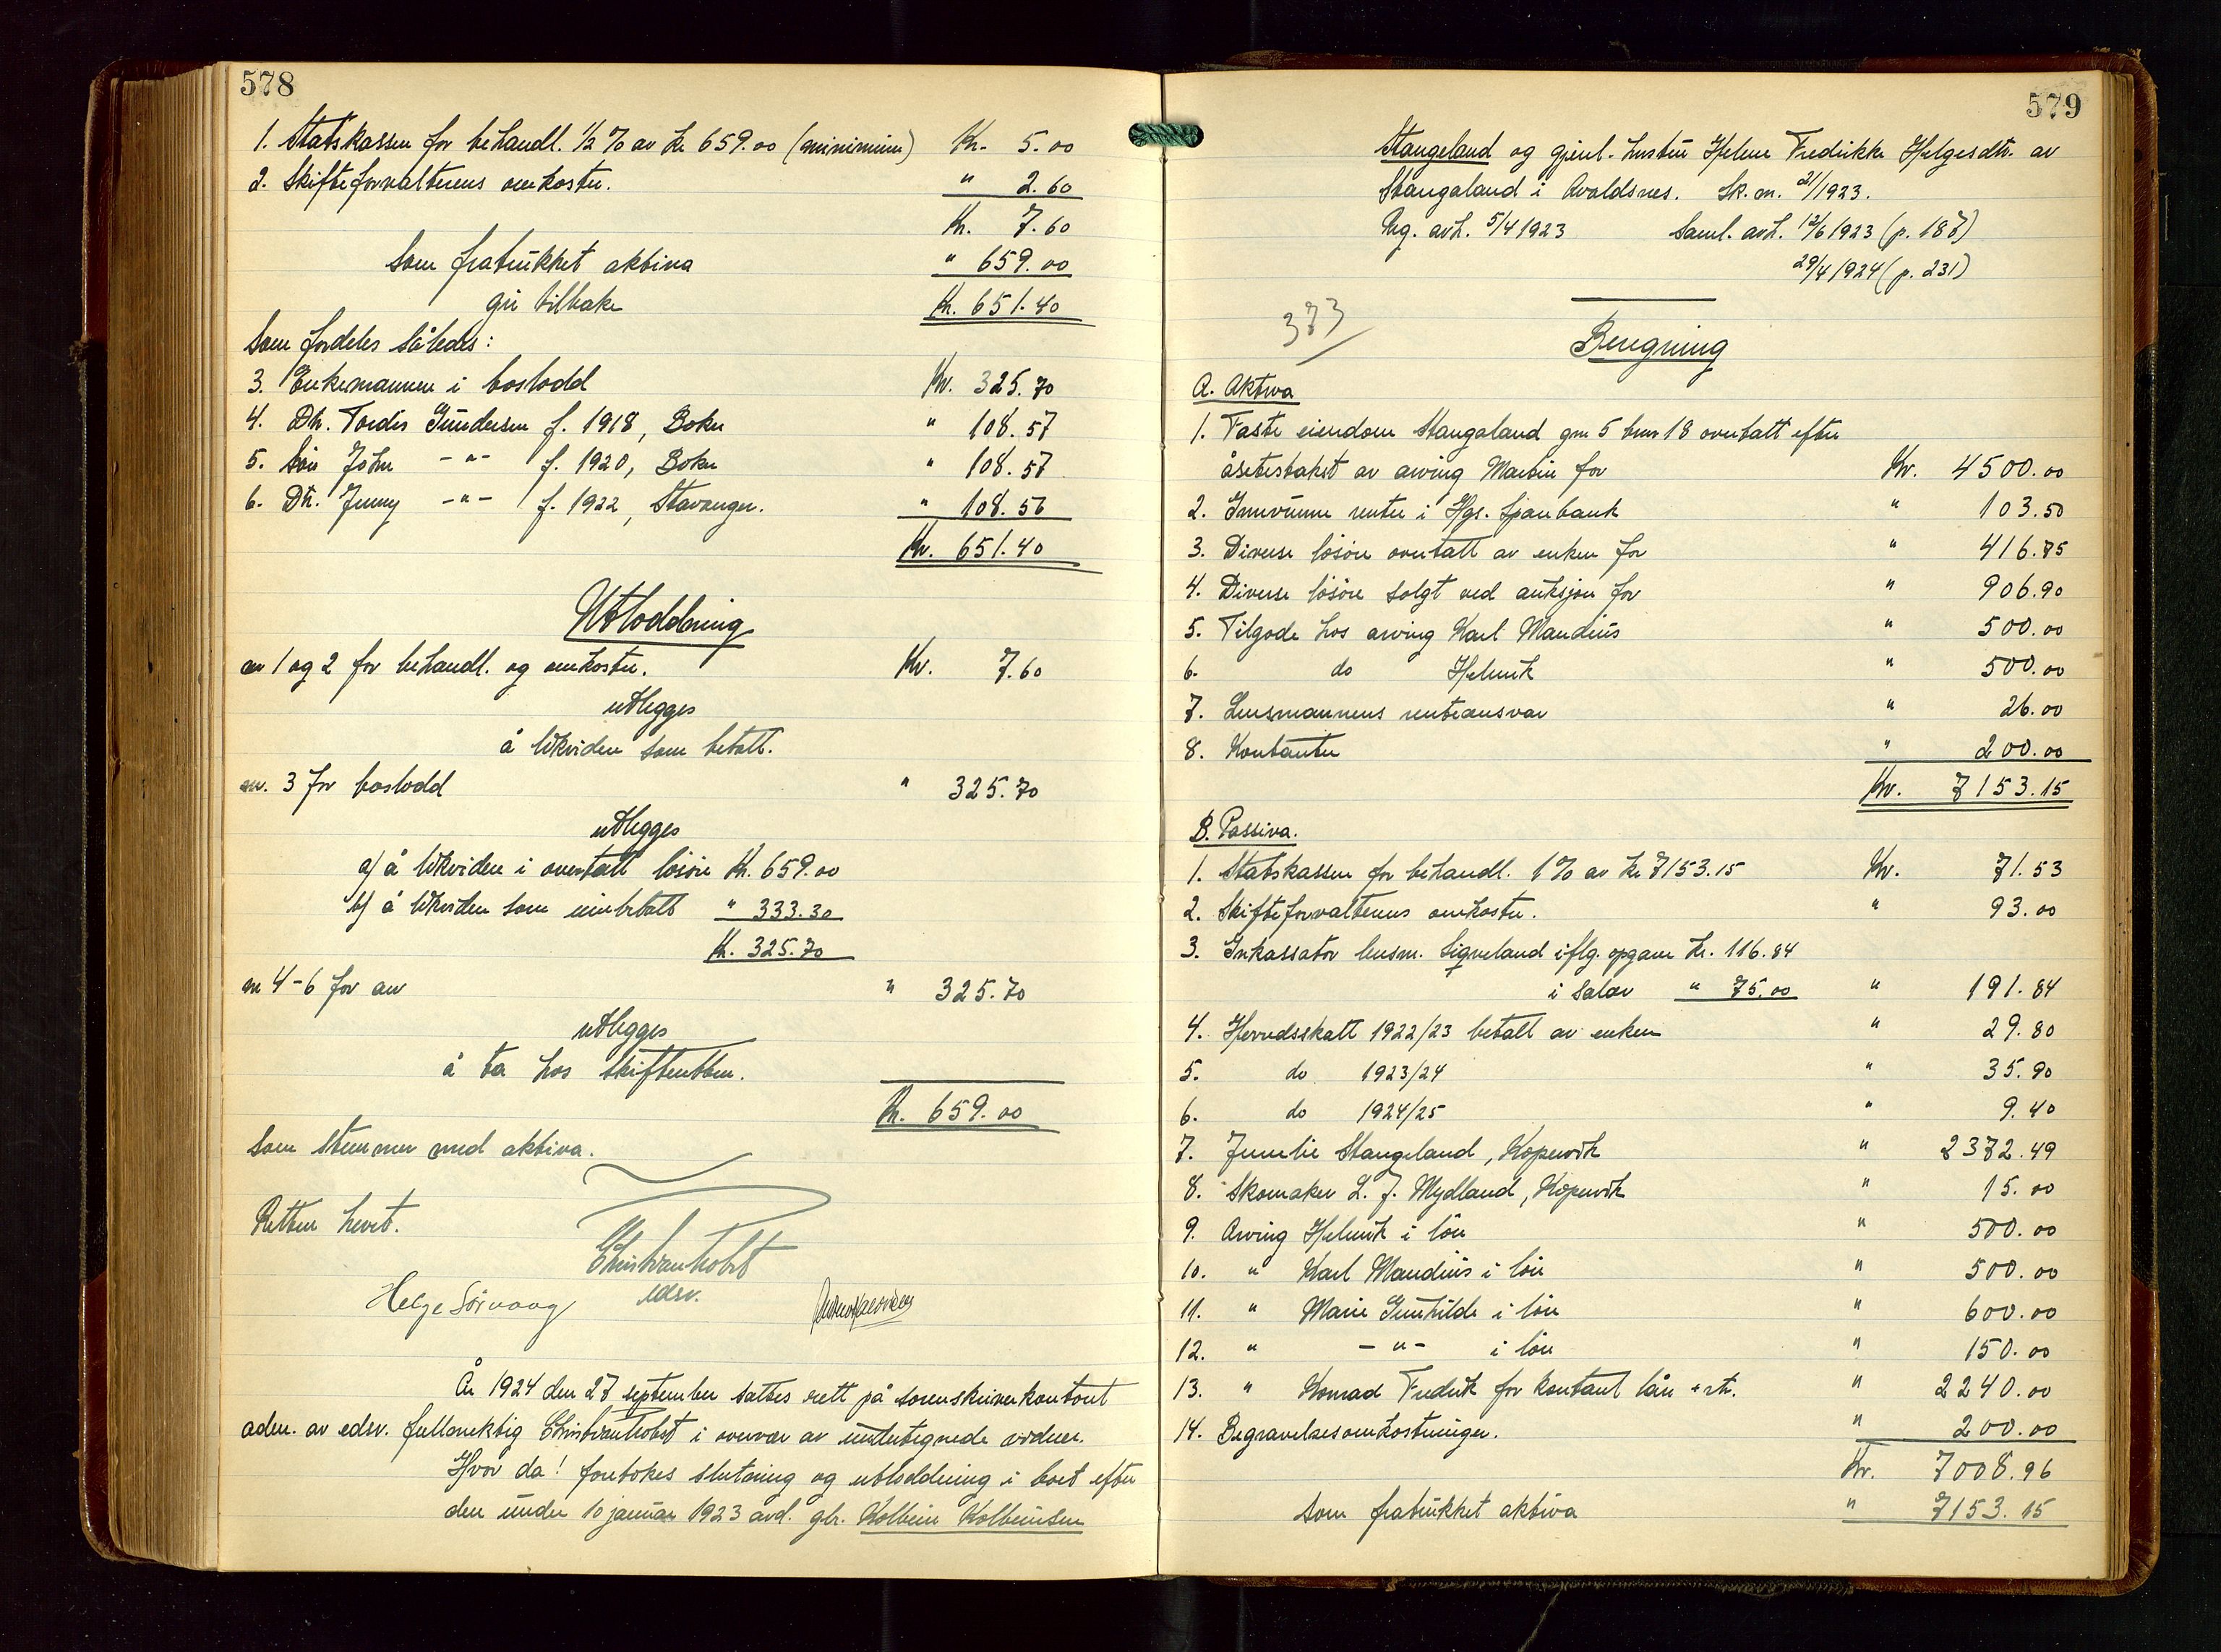 578
1. Statskassen for behandl. ½ % av kr 659.00 (minimum) Kr. 5.00
2. Skifteforvalterens omkostn. " 2.60
Kr. 7.60
Som fratrukket aktiva " 659.00
gir tilbake Kr. 651.40
Som fordeles således:
3. Enkemannen i boslodd Kr. 325.70
4. Dtr. Tordis Gundersen f. 1918, Bokn " 108.57
5. Søn John -"- f. 1920, Bokn " 108.57
6. Dtr. Jenny -"- f. 1922, Stavanger. " 108.56
Kr. 651.40
Utloddning
nr 1 og 2 for behandl. og omkostn. Kr. 7.60
utlegges
å likviden som betalt.
nr. 3 for boslodd " 325.70
utlegges
a) å likviden i overtatt løsøre Kr. 659.00
b) å likviden som innbetalt " 333.30
Kr. 325.70
nr 4-6 for arv " 325.70
utlegges
å ta hos skifteretten.
Kr. 659.00
Som stemmer med aktiva.
Retten hevet.
Christian Holst
edsv.
Helge Sörvaag
År 1924 den 27 september sattes rett på sorenskriverkontoret
adm. av edsv. fullmektig Christian Holst i overvær av undertegnede vidner.
Hvor da! foretokes slutning og utloddning i boet efter
den under 10 januar 1923 avd. gbr. Kolbein Kolbeinsen
579
Stangeland og gjenl. hustru Helene Fredrikke Helgesdtr. av
Stangaland i Avaldsnes. Sk. nr. 21/1923.
Reg. avh. 5/4 1923 Saml. avh. 12/6 1923 (p. 187)
29/4 1924 (p. 231)
373
Beregning
A. Aktiva
1. Faste eiendom Stangaland gnr 5 bnr 18 overtatt efter
åsetestakst av arving Martin for Kr. 4500.00
2. Innvunne renter i Hgs. Sparebank " 103.50
3. Diverse løsøre overtatt av enken for " 416.75
4. Diverse løsøre solgt ved auksjon for " 906.90
5. Tilgode hos arving Karl Maudius " 500.00
6. do Helmik " 500.00
7. Lensmannens renteansvar " 26.00
8. Kontanter " 200.00
Kr. 7153.15
B. Passiva.
1. Statskassen for behandl. 1 % av kr 7153.15 Kr. 71.53
2. Skifteforvalterens omkostn. " 93.00
3. Inkassator lensm. Signeland iflg. opgave kr. 116.84
i salær " 75.00 " 191.84
4. Herredsskatt 1922/23 betalt av enken " 29.80
5. do 1923/24 " 35.90
6. do 1924/25 " 9.40
7. Stangeland, Kopervik " 2372.49
8. Skomaker L. J. Mydland, Kopervik " 15.00
9. Arving Helmik i løn " 500.00
10. " Karl Maudius i løn " 500.00
11. " Marie Gunhilde i løn " 600.00
12. " -"- i løn " 150.00
13. " Konrad Fredrik for kontant lån + rtr. " 2240.00
14. Begravelsesomkostninger. " 200.00
Kr. 7008.96
Som fratrukket aktiva " 7153.15